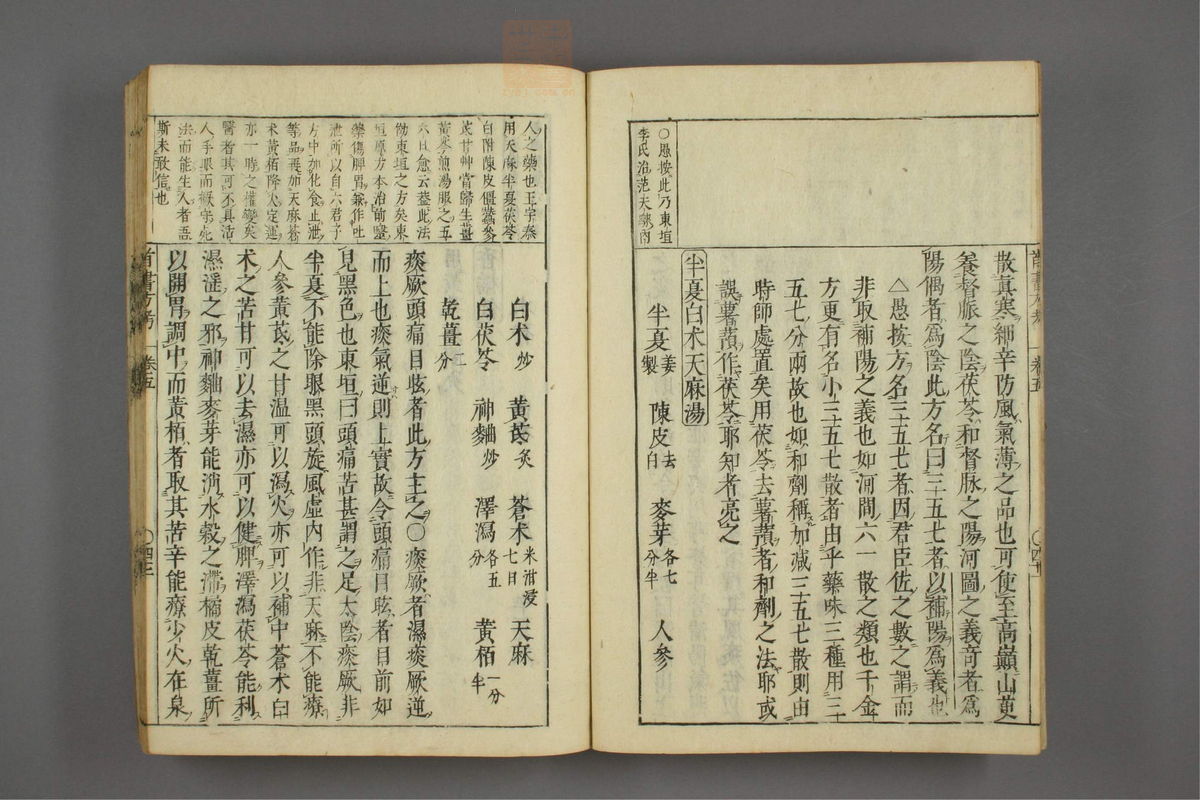 散真寒細辛防風氣薄之品也可使至高巔山茰
養督脈之陰茯苓和督脉之陽河圖之義竒者爲
陽偶者爲陰此方名曰三五七者以補陽爲義也
△愚按方名三五七者因君臣佐之數之謂而
非取補陽之義也如河間六一散之類也千金
方更有名小三五七散者由乎藥味三種用三
五七分兩故也如和劑稱加減三五七散則由
時師處置矣用茯苓去薯蕷者和劑之法耶或
誤薯蕷作茯苓耶知者亮之
○愚按此乃東垣
李氏治范天騋內
半夏白朮天麻湯
半夏姜製 陳皮去白 麥芽各七分半 人參
白朮炒 黃芪炙 蒼朮米泔浸七日 天麻
白茯苓 神麯炒 澤瀉各五分 黃栢一分半
乾薑二分
人之藥也王宇泰
用天麻半夏茯苓
白附陳皮殭蠶參
芪甘艸當歸生薑
黃芩煎湯服之五
六日愈云蓋此法
倣東垣之方矣東
垣原方本治前醫
藥傷脾胃兼作吐
泄所以自六君子
方中加化食止泄
等品再加天麻蒼
朮黃栢降火定運
亦一時之權變矣
醫者其可不具活
人手眼而徒守死
法而能生人者吾
斯未敢信也
痰厥頭痛目眩者此方主之○痰厥者濕痰厥逆
而上也痰氣逆則上實故令頭痛目眩者目前如
見黑色也東垣曰頭痛苦甚謂之足太陰痰厥非
半夏不能除眼黑頭旋風虛內作非天麻不能療
人參黃芪之甘温可以瀉火亦可以補中蒼朮白
朮之苦甘可以去濕亦可以健脾澤瀉茯苓能利
濕淫之邪神麯麥芽能消水穀之滯橘皮乾薑所
以開胃調中而黃栢者取其苦辛能療少火在泉
卷五
卷五